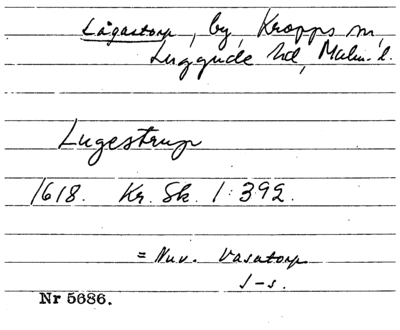 Lågastorp, by, Kropps sn,
Luggude hd, Malm. l.
Lugestrup
1618. Kr. Sk. 1:392.
= Nuv. Vasatorp
J-s.
Nr 5686.